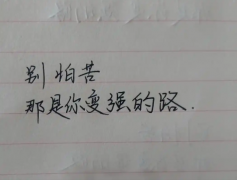 别怕苦
那是你变强的路.